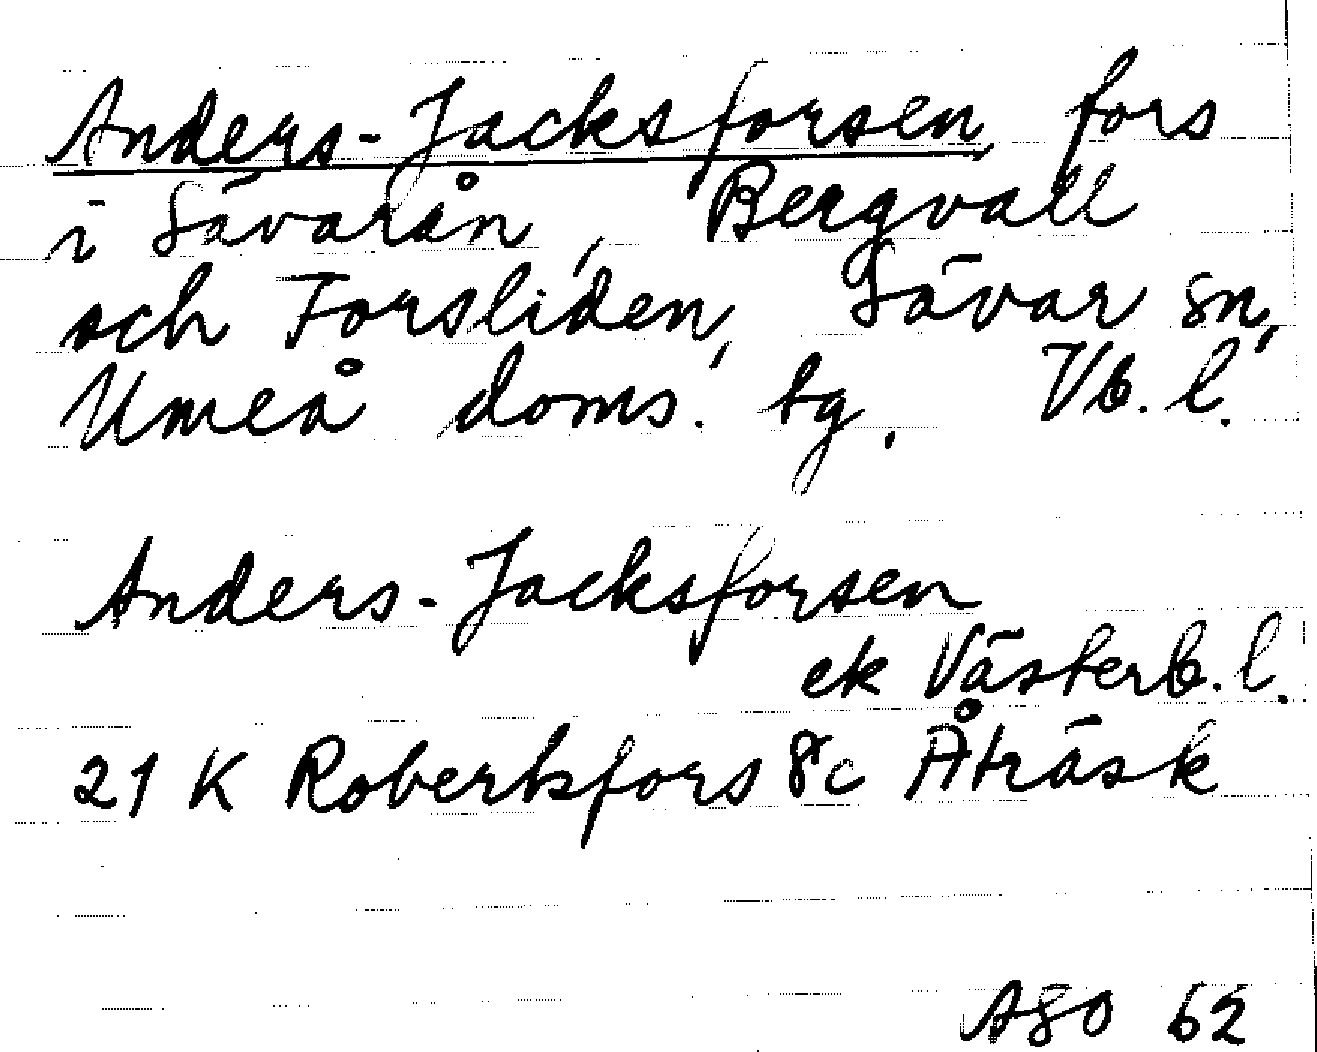 Anders-Jacksforsen, fors
i Sävarån, Bergvall
och Forsliden, Sävar sn,
Umeå doms. tg. Vb. l.
Anders-Jacksforsen
ek Västerb. l.
21 K Robertsfors 8c Åträsk
ASO 62